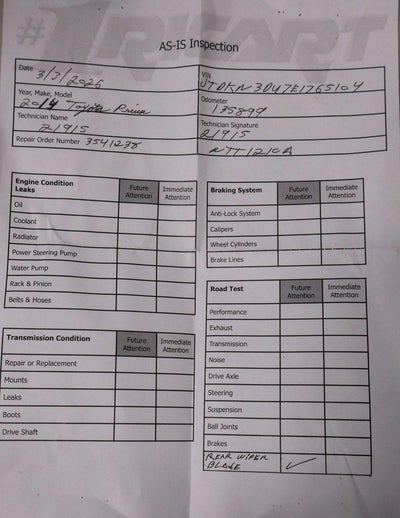 #1 RICART
AS-IS Inspection
Date 3/3/2026
VIN JTDKN3DU7E1765104
Year, Make, Model 2014 Toyota Prius
Odometer 135899
Technician Name 21915
Technician Signature 21915
Repair Order Number 3541238
NTT1210A
Engine Condition
Leaks
Future Attention
Immediate Attention
Oil
Coolant
Radiator
Power Steering Pump
Water Pump
Rack & Pinion
Belts & Hoses
Transmission Condition
Future Attention
Immediate Attention
Repair or Replacement
Mounts
Leaks
Boots
Drive Shaft
Braking System
Future Attention
Immediate Attention
Anti-Lock System
Calipers
Wheel Cylinders
Brake Lines
Road Test
Future Attention
Immediate Attention
Performance
Exhaust
Transmission
Noise
Drive Axle
Steering
Suspension
Ball Joints
Brakes
REAR WIPER
BLADE ✓